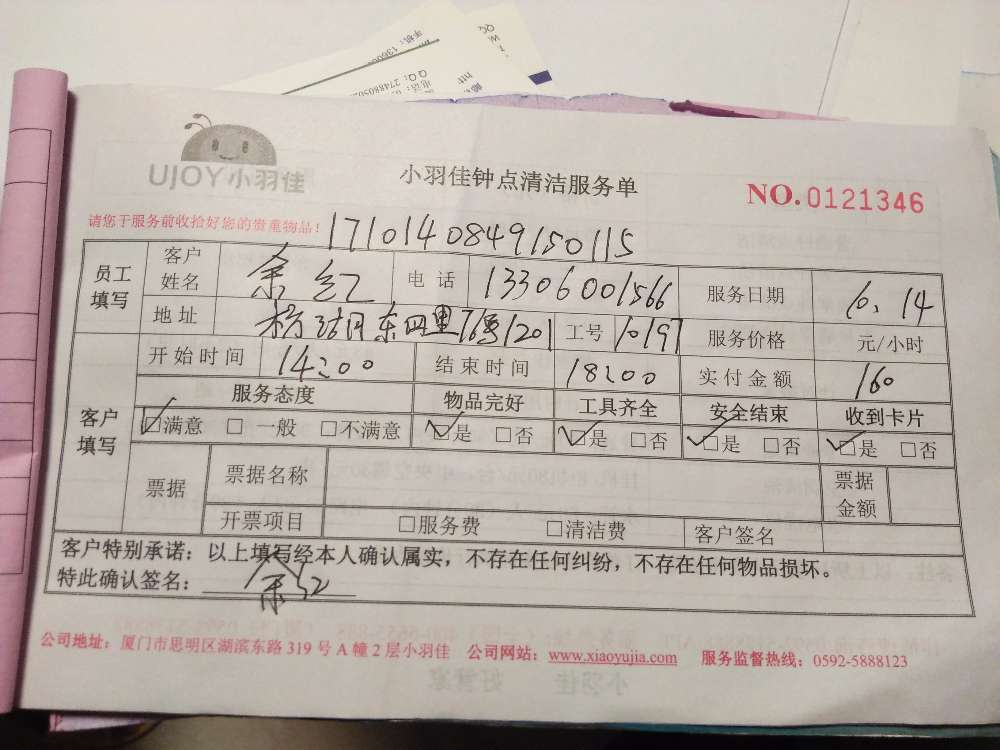 手机：13606
QQ：2748805
UJOY小羽佳
小羽佳钟点清洁服务单
NO.0121346
请您于服务前收拾好您的贵重物品！
1710140849150115
员工填写 客户姓名 余红 电话 13306001566 服务日期 10.14
地址 东四里76号1201 工号 10197 服务价格 元/小时
客户填写 开始时间 14:00 结束时间 18:00 实付金额 160
服务态度 物品完好 工具齐全 安全结束 收到卡片
☑满意 □一般 □不满意 ☑是 □否 ☑是 □否 ☑是 □否 ☑是 □否
票据 票据名称 票据金额
开票项目 □服务费 □清洁费 客户签名
客户特别承诺：以上填写经本人确认属实，不存在任何纠纷，不存在任何物品损坏。
特此确认签名：余红
公司地址：厦门市思明区湖滨东路319号A幢2层小羽佳 公司网站：www.xiaoyujia.com 服务监督热线：0592-5888123